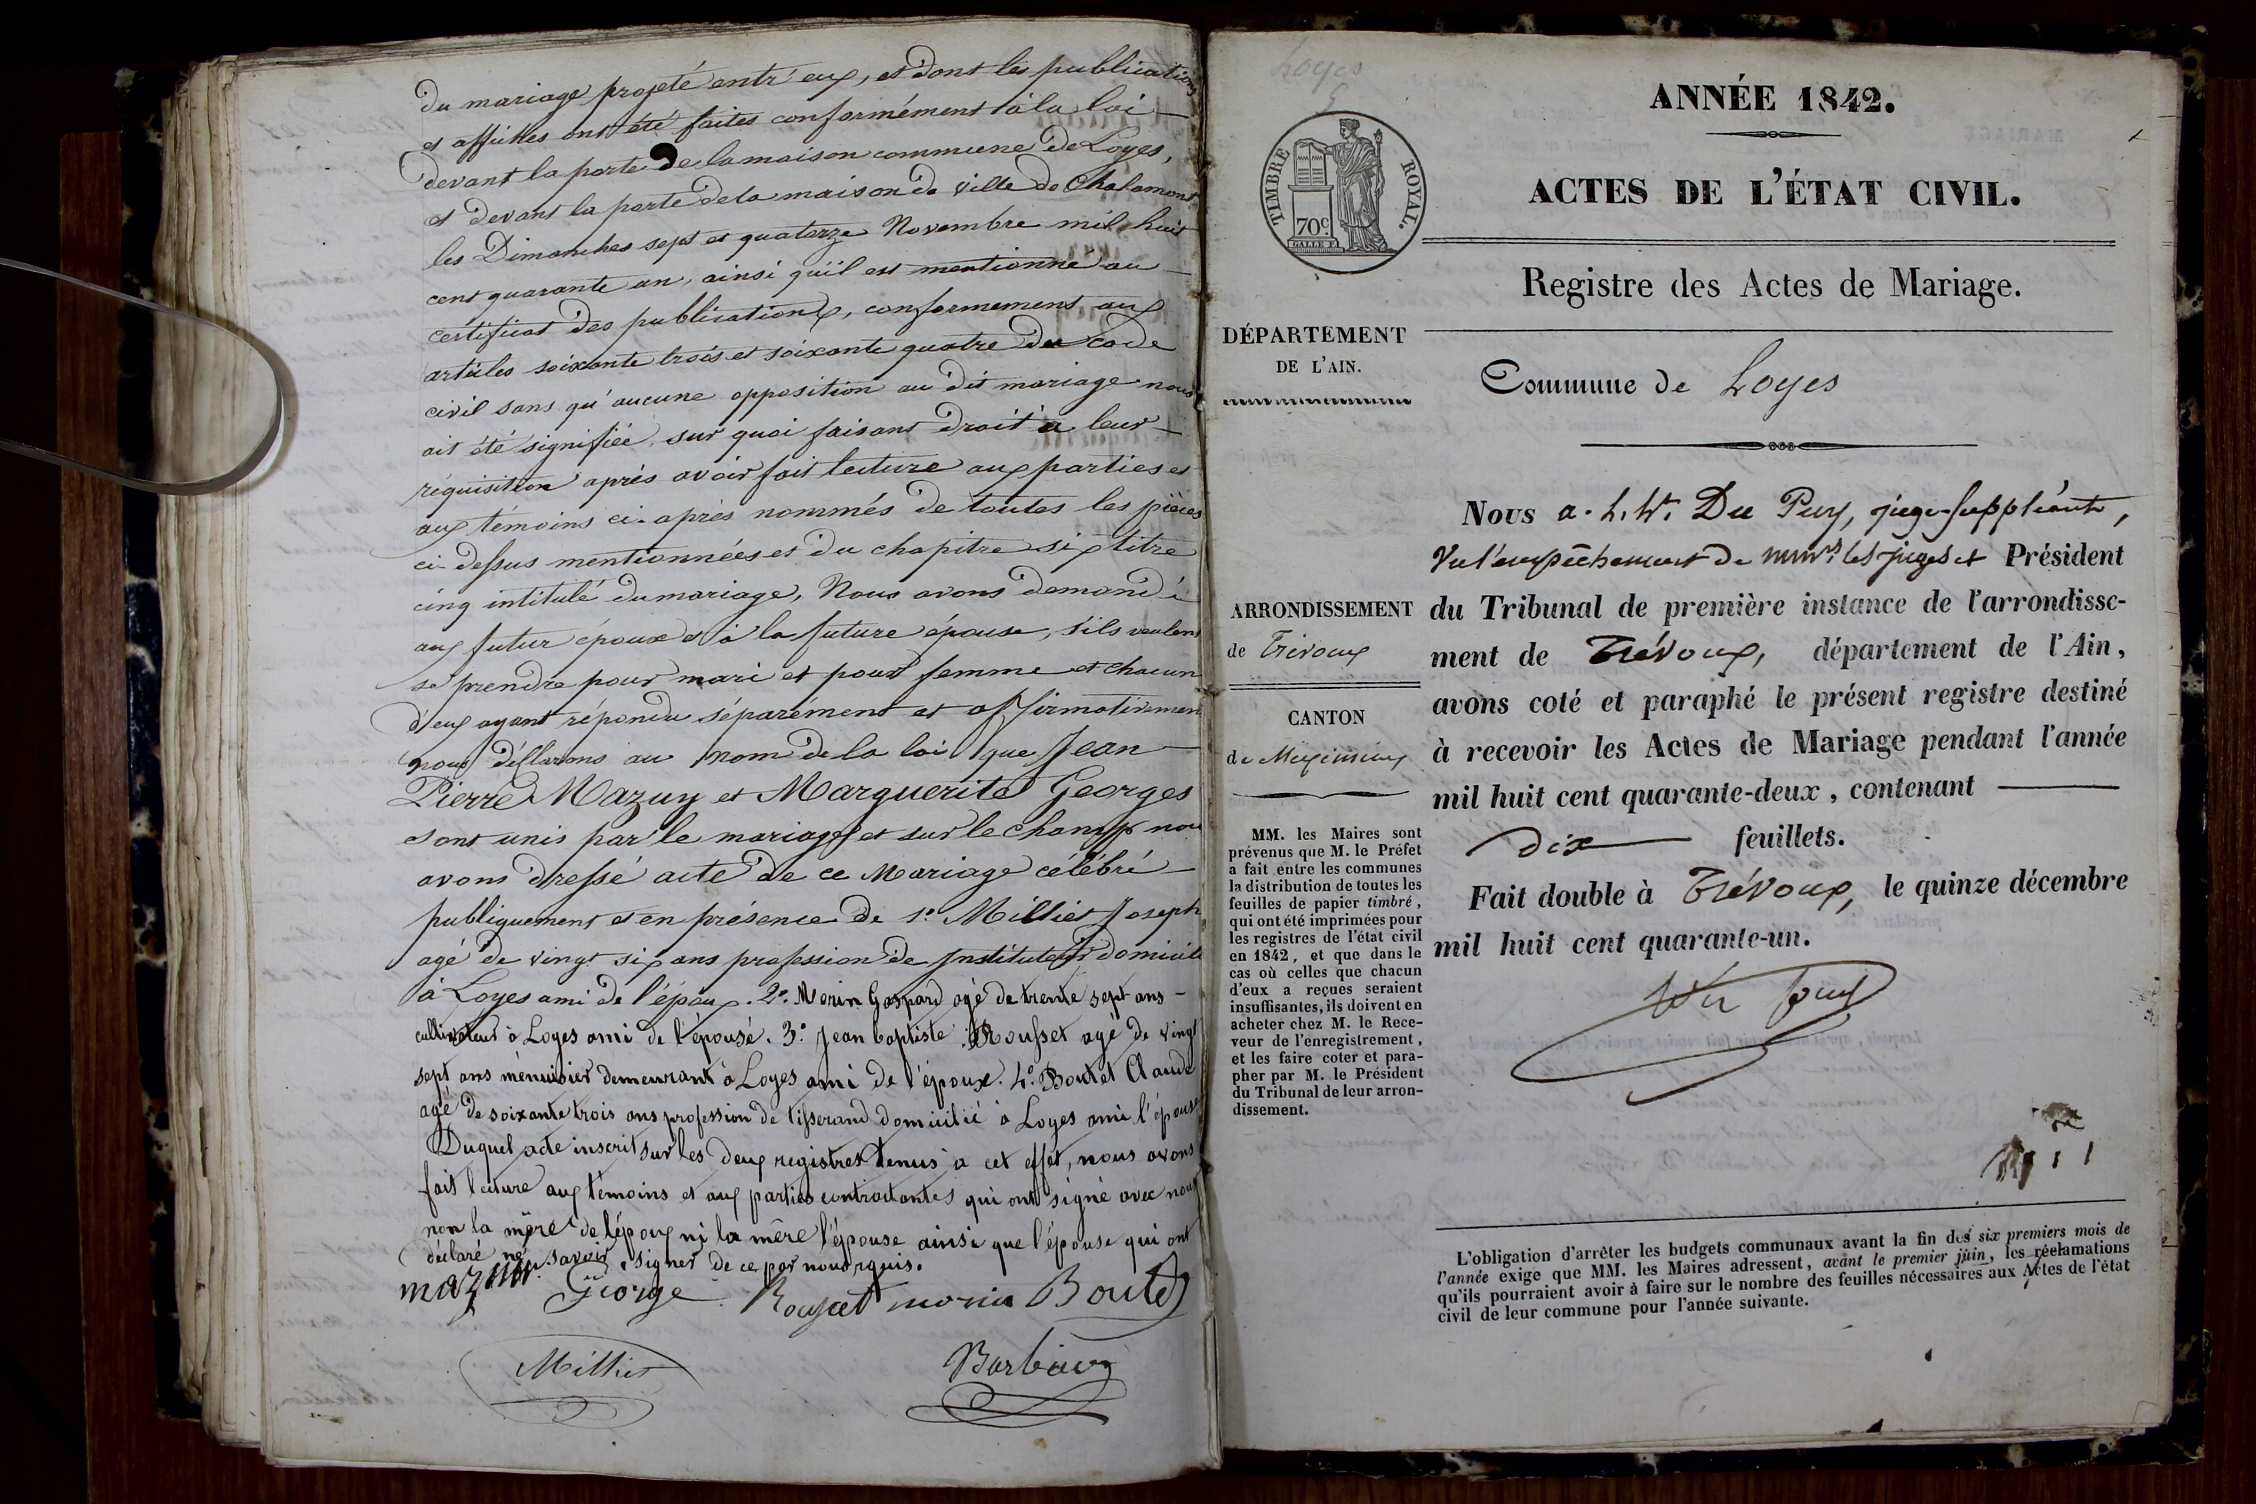 du mariage projeté entr'eux, et dont les publications
et affiches ont été faites conformément à la loi
devant la porte de la maison commune de Loyes,
et devant la porte de la maison de ville de Chalamont
les Dimanches sept et quatorze Novembre mil huit
cent quarante un, ainsi qu'il est mentionné au
certificat des publications, conformement aux
articles soixante trois et soixante quatre du code
civil sans qu'aucune opposition au dit mariage nous
ait été signifiée, sur quoi faisant droit à leur
réquisition après avoir fait lecture aux parties et
aux témoins ci-après nommés de toutes les pièces
ci-dessus mentionnées et du chapitre six titre
cinq intitulé du mariage, Nous avons demandé
aux futur époux et à la future épouse, s'ils veulent
se prendre pour mari et pour femme et chacun
d'eux ayant répondu séparement et affirmativement
nous déclarons au nom de la loi que Jean
Pierre Mazuy et Marguerite Georges
sont unis par le mariage et sur le champ nous
avons dressé acte de ce Mariage célébré
publiquement et en présence de 1º Milliet Joseph
agé de vingt six ans profession de Instituteur domicilé
à Loyes ami de l'époux. 2º. Morin Gaspard agé de trente sept ans
cultivateur à Loyes ami de l'épousé. 3º. Jean baptiste Rousset agé de vingt
sept ans ménuisier demeurant à Loyes ami de l'époux. 4º. Boutet Claude
agé de soixante trois ans profession de tisserand domicilié à Loyes ami l'épouse
Duquel acte inscrit sur les deux registres tenus à cet effet, nous avons
fait lecture aux témoins et aux parties contractantes qui ont signé avec nous
non la mère de l'époux ni la mère l'épouse ainsi que l'épouse qui ont
déclaré ne savoir signer de ce par nous requis.
mazuy George Rousset morin Boutet
Milliet Barbary
Loyes
ANNÉE 1842.
ACTES DE L'ÉTAT CIVIL.
TIMBRE ROYAL.
70c.
Registre des Actes de Mariage.
DÉPARTEMENT
DE L'AIN.
Commune de Loyes
ARRONDISSEMENT
de Trévoux
CANTON
de Meximieux
MM. les Maires sont
prévenus que M. le Préfet
a fait entre les communes
la distribution de toutes les
feuilles de papier timbré,
qui ont été imprimées pour
les registres de l'état civil
en 1842, et que dans le
cas où celles que chacun
d'eux a reçues seraient
insuffisantes, ils doivent en
acheter chez M. le Rece-
veur de l'enregistrement,
et les faire coter et para-
pher par M. le Président
du Tribunal de leur arron-
dissement.
Nous a. h. Du Puy, juge-suppléant,
Vu l'empêchement de mmrs les juges et Président
du Tribunal de première instance de l'arrondisse-
ment de Trévoux, département de l'Ain,
avons coté et paraphé le présent registre destiné
à recevoir les Actes de Mariage pendant l'année
mil huit cent quarante-deux, contenant
dix feuillets.
Fait double à Trévoux, le quinze décembre
mil huit cent quarante-un.
L'obligation d'arrêter les budgets communaux avant la fin des six premiers mois de
l'année exige que MM. les Maires adressent, avant le premier juin, les réclamations
qu'ils pourraient avoir à faire sur le nombre des feuilles nécessaires aux Actes de l'état
civil de leur commune pour l'année suivante.